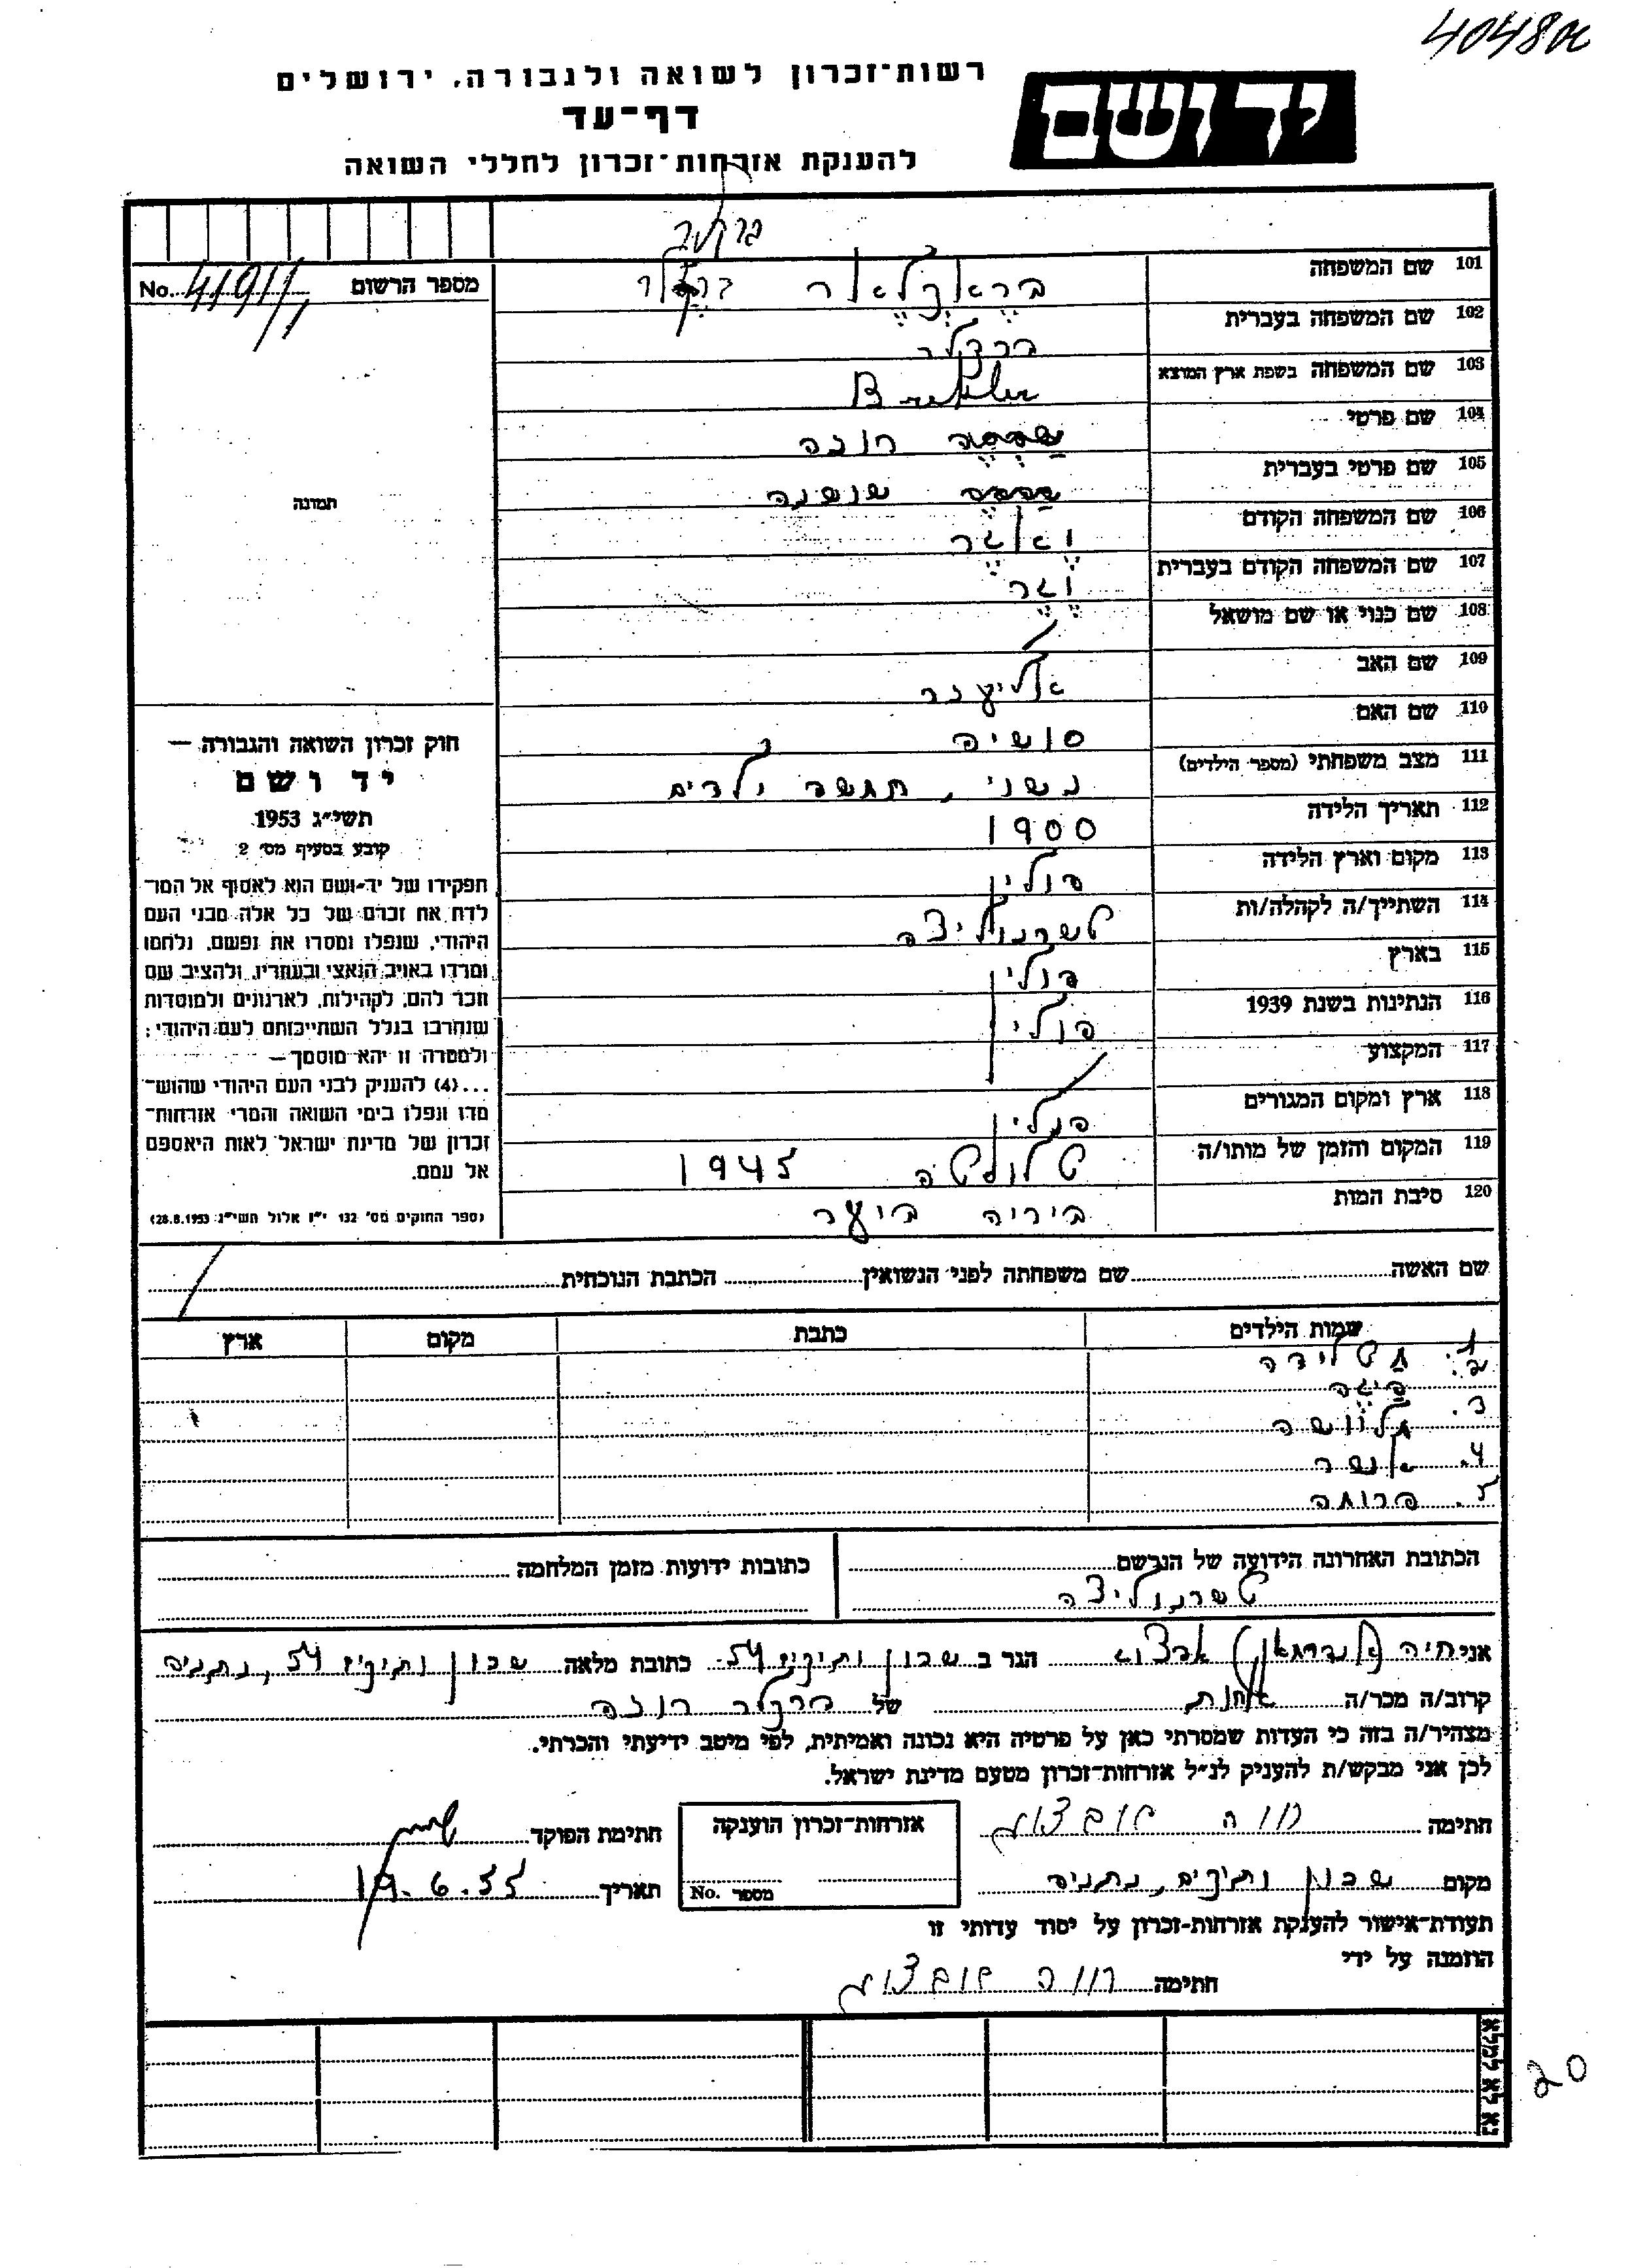 4048
רשות־זכרון לשואה ולגבורה, ירושלים
יד ושם
דף־עד
להענקת אזרחות־זכרון לחללי השואה
101 שם המשפחה
מספר הרשום No. 41911
102 שם המשפחה בעברית
ברקלר
103 שם המשפחה בשפת ארץ המוצא
Brekler
104 שם פרטי רוזה
105 שם פרטי בעברית שושנה
106 שם המשפחה הקודם וואגר
107 שם המשפחה הקודם בעברית וגר
108 שם כנוי או שם מושאל
109 שם האב אליעזר
110 שם האם סושיה
111 מצב משפחתי (מספר הילדים) נשוי, חמשה ילדים
112 תאריך הלידה 1900
113 מקום וארץ הלידה פולין
114 השתייך/ה לקהלה/ות
115 בארץ פולין
116 הנתינות בשנת 1939 פולין
117 המקצוע
118 ארץ ומקום המגורים פולין
119 המקום והזמן של מותו/ה 1945
120 סיבת המות ביריה ביער
תמונה
חוק זכרון השואה והגבורה —
יד ושם
תשי״ג 1953
קובע בסעיף מס׳ 2
תפקידו של יד־ושם הוא לאסוף אל המו־
לדת את זכרם של כל אלה מבני העם
היהודי, שנפלו ומסרו את נפשם, נלחמו
ומרדו באויב הנאצי ובעוזריו, ולהציב שם
וזכר להם, לקהילות, לארגונים ולמוסדות
שנחרבו בגלל השתייכותם לעם היהודי;
ולמטרה זו יהא מוסמך —
...(4) להעניק לבני העם היהודי שהוש־
מדו ונפלו בימי השואה והמרי אזרחות־
זכרון של מדינת ישראל לאות היאספם
אל עמם.
(ספר החוקים מס׳ 132 י״ז אלול תשי״ג 28.8.1953)
שם האשה שם משפחתה לפני הנשואין הכתבת הנוכחית
שמות הילדים כתבת מקום ארץ
1.
2.
3.
4. אשר
5. פרומה
הכתובת האחרונה הידועה של הנרשם כתובות ידועות מזמן המלחמה
אני חיה הגר ב שכון ותיקים 54 כתובת מלאה שכון ותיקים 54, נתניה
קרוב/ה מכר/ה אחות של ברקלר רוזה
מצהיר/ה בזה כי העדות שמסרתי כאן על פרטיה היא נכונה ואמיתית, לפי מיטב ידיעתי והכרתי.
לכן אני מבקש/ת להעניק לנ״ל אזרחות־זכרון מטעם מדינת ישראל.
חתימה
אזרחות־זכרון הוענקה
מספר No.
חתימת הפוקד
מקום שכון ותיקים, נתניה
תאריך 19.6.55
תעודת־אישור להענקת אזרחות־זכרון על יסוד עדותי זו
הוזמנה על ידי
חתימה
נא לא למלא
20